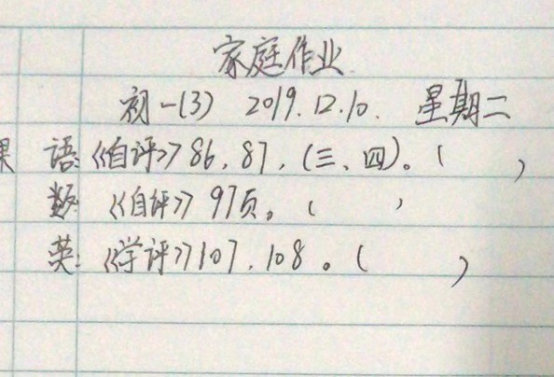 家庭作业
初一(3) 2019.12.10. 星期二
语:《自评》86,87,(三、四)。( )
数: 《自评》97页。( )
英:《学评》107,108。( )